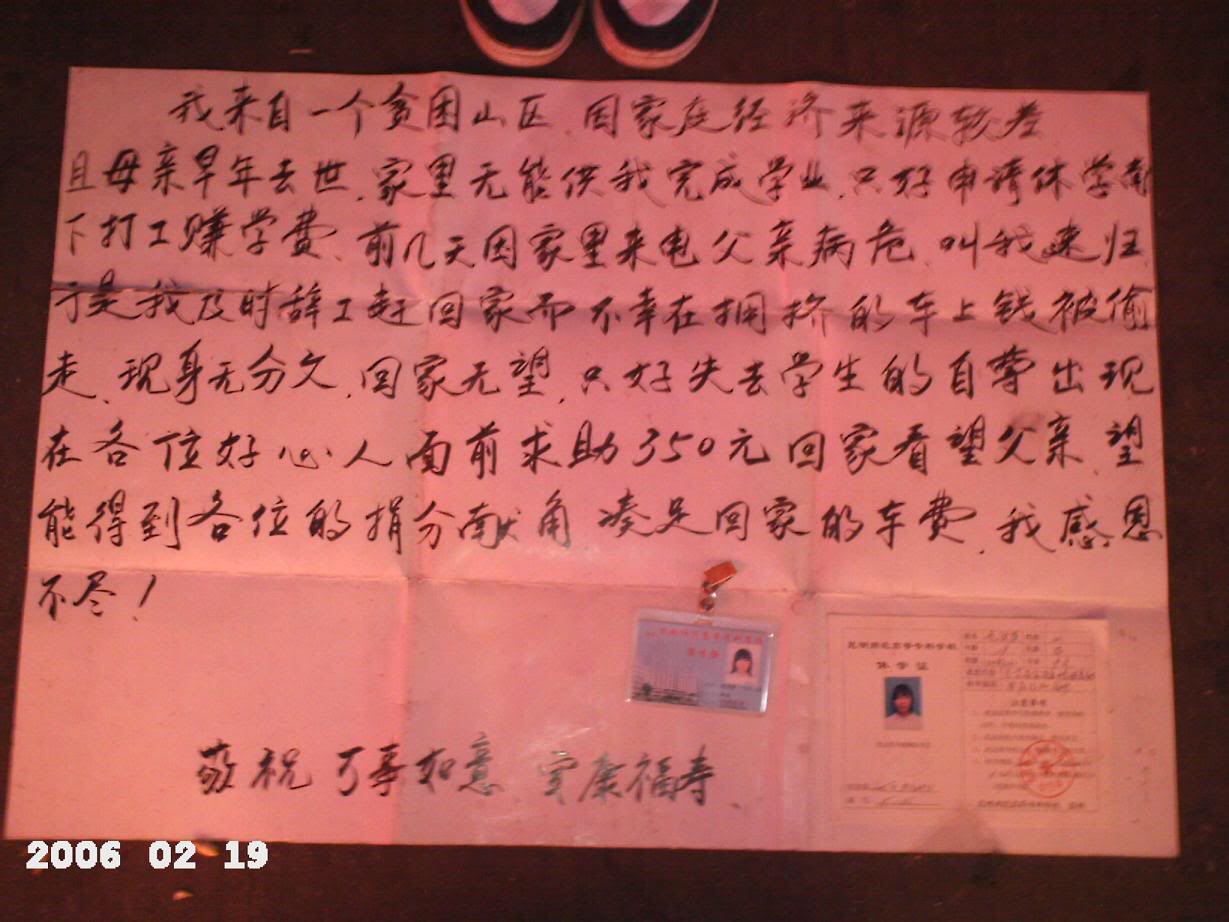 我来自一个贫困山区.因家庭经济来源较差
且母亲早年去世.家里无能供我完成学业.只好申请休学南
下打工赚学费、前几天因家里来电父亲病危.叫我速归
于是我及时辞工赶回家而不幸在拥挤的车上钱被偷
走、现身无分文.回家无望.只好失去学生的自尊出现
在各位好心人面前求助350元回家看望父亲.望
能得到各位的捐分献角 凑足回家的车费.我感恩
不尽!
学生证
昆明师范高等专科学校
休学证
注意事项
敬祝 万事如意 安康福寿、
2006 02 19